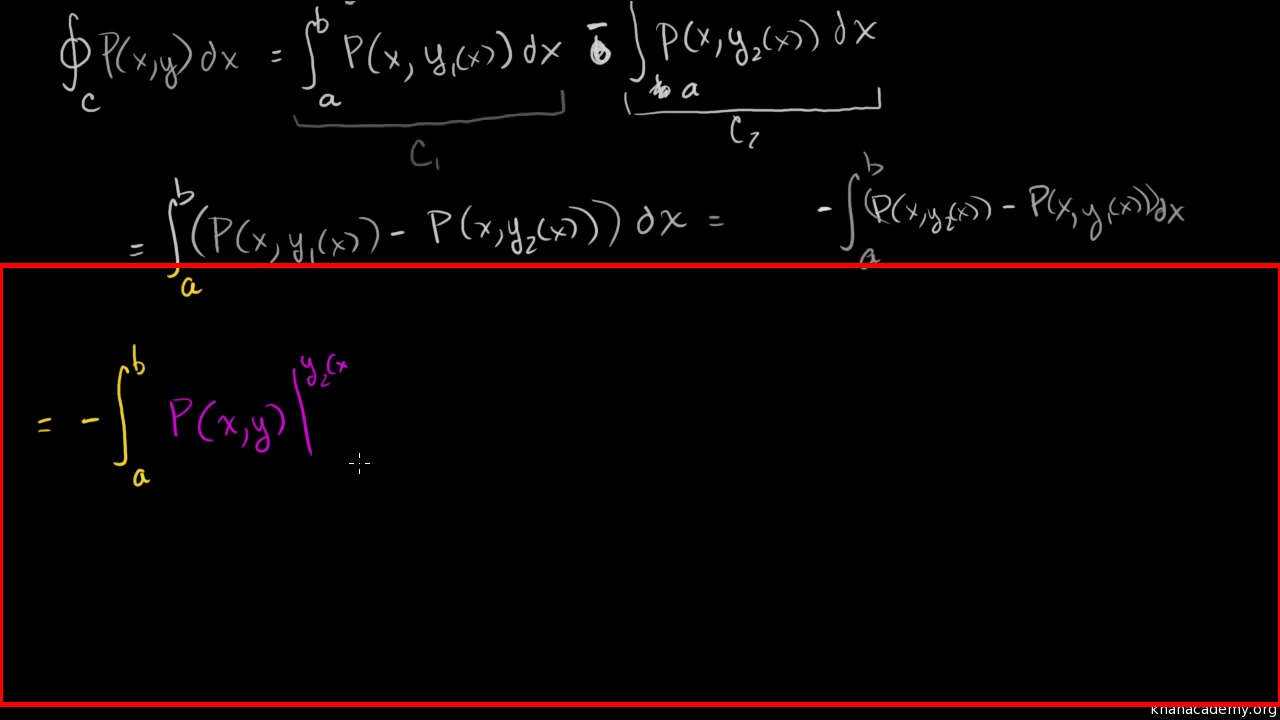 ∮_C P(x,y) dx = ∫_a^b P(x, y₁(x)) dx - ∫_a P(x, y₂(x)) dx
C₁ C₂
= ∫_a^b (P(x, y₁(x)) - P(x, y₂(x))) dx = - ∫_a^b (P(x, y₂(x)) - P(x, y₁(x))) dx
= - ∫_a^b P(x,y) |^{y₂(x}
khanacademy.org